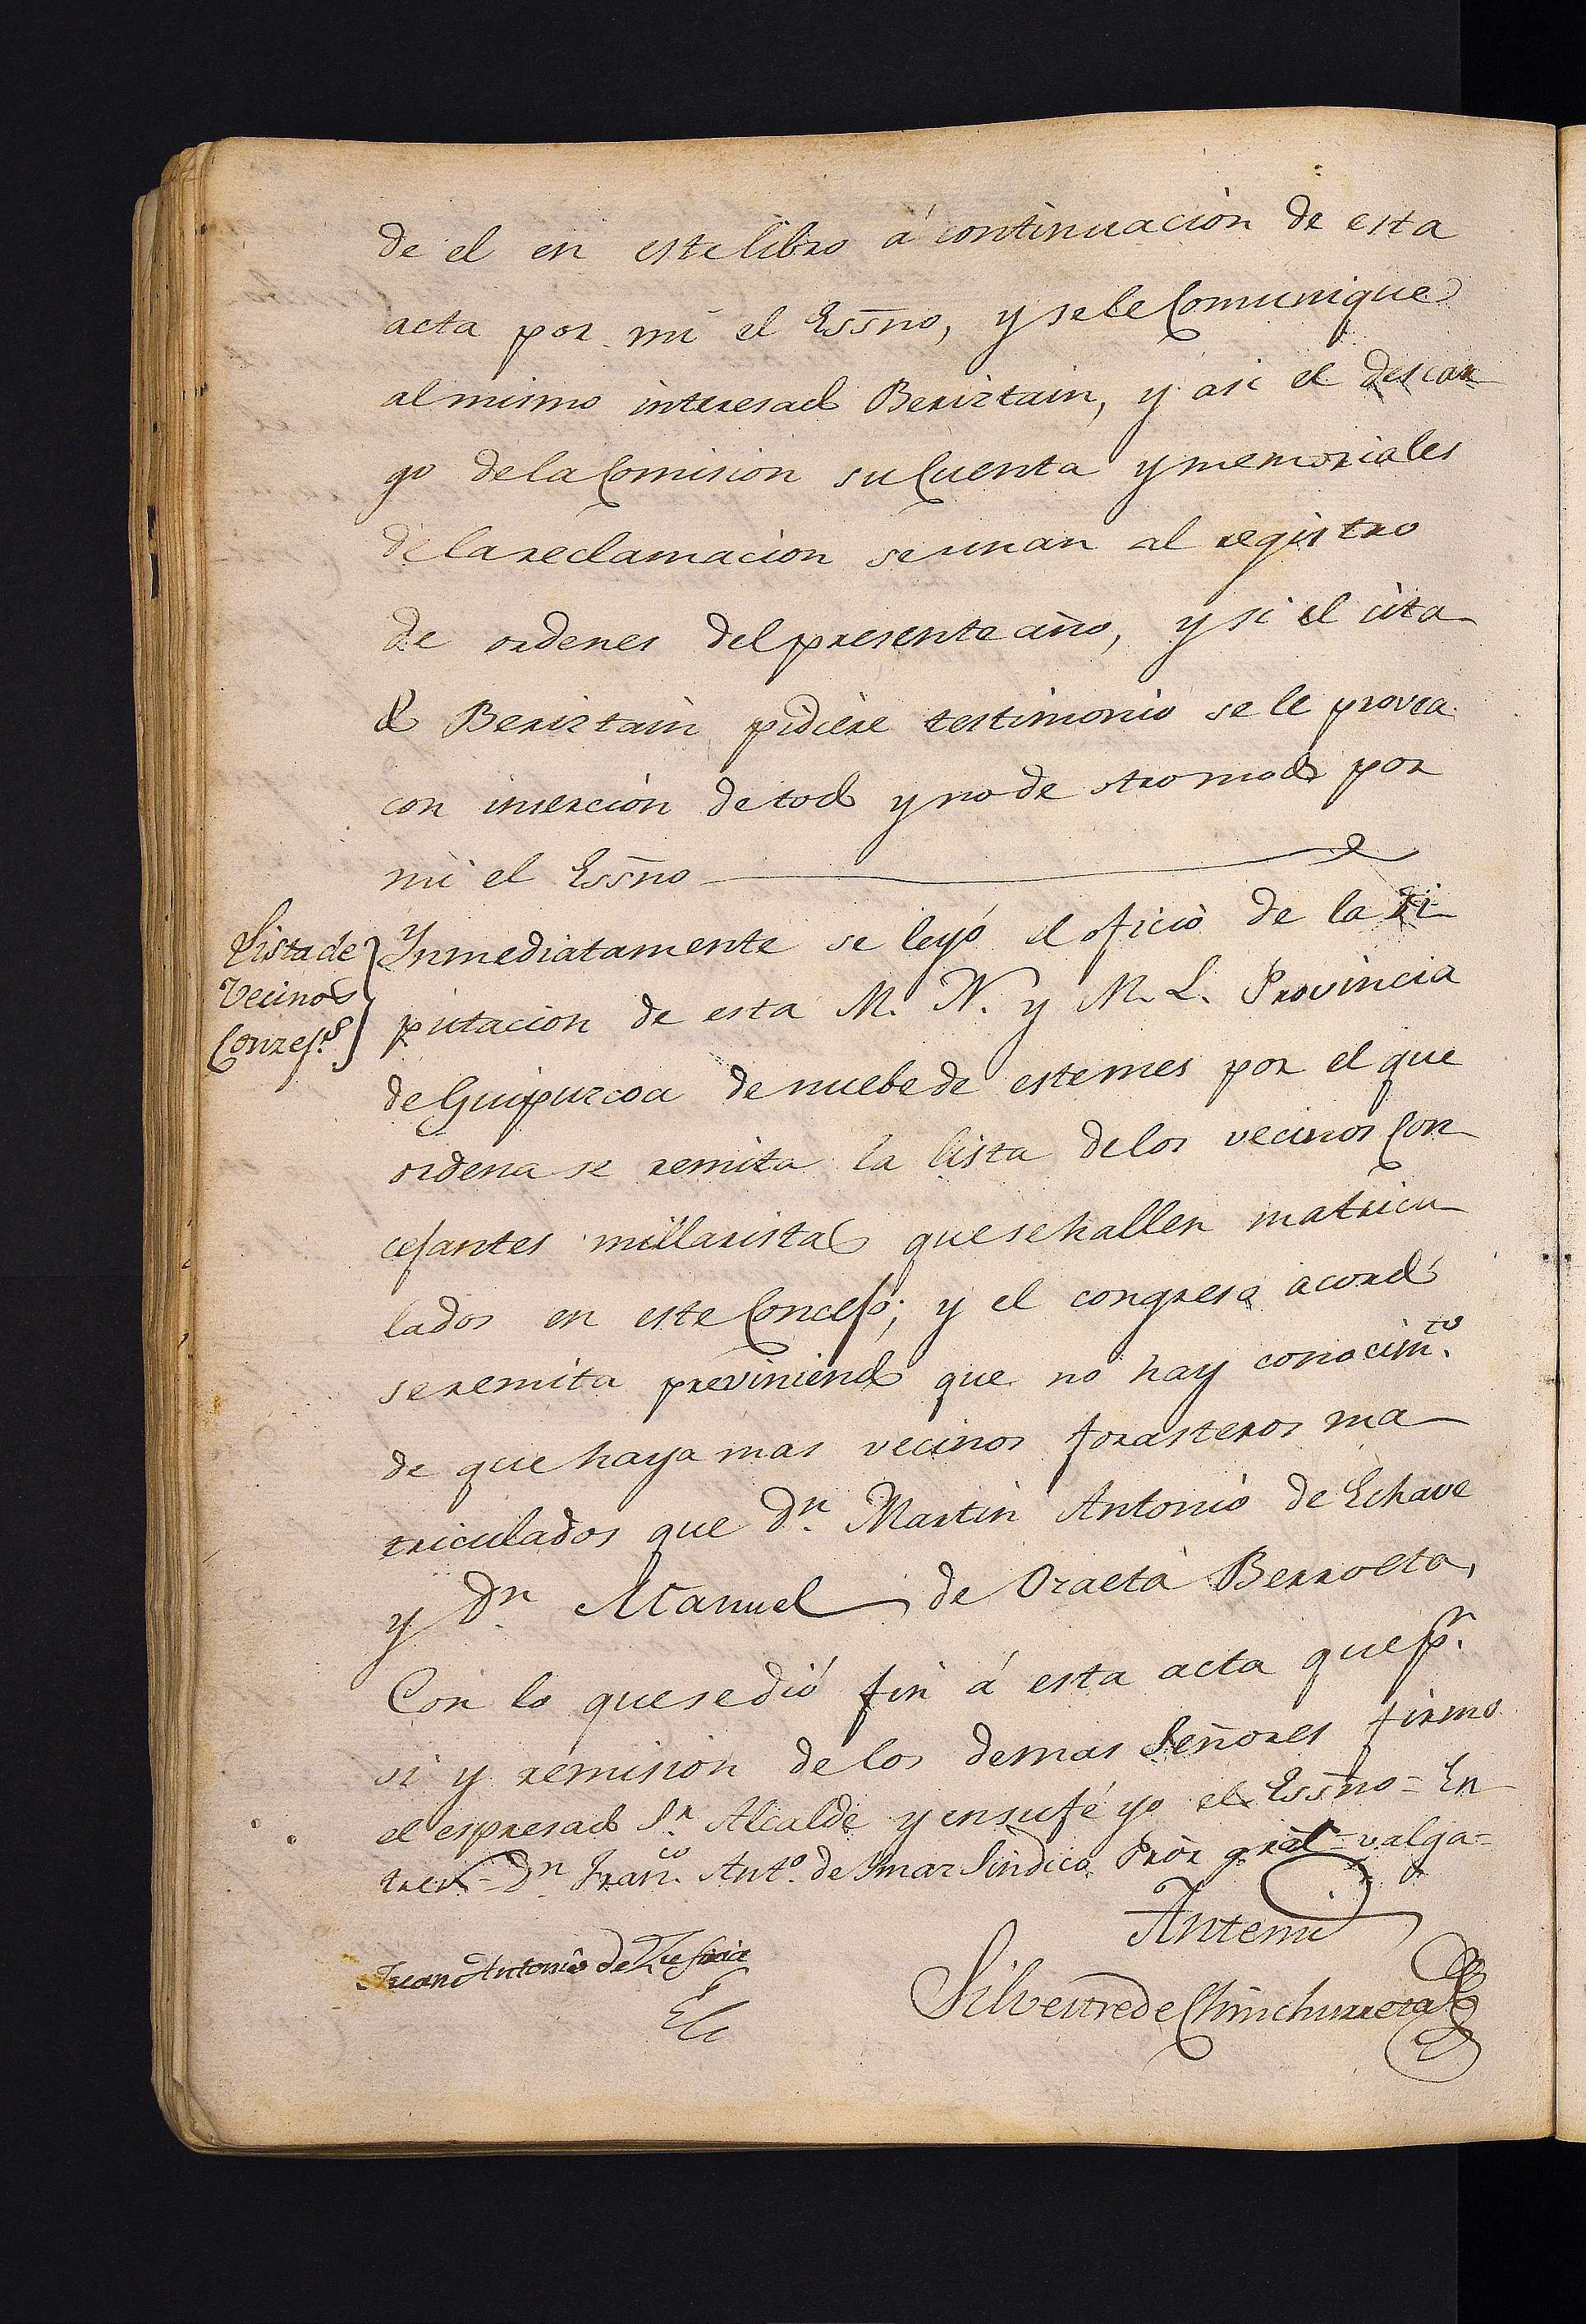 de el en este libro á continuacion de esta
acta por mi el Essno, y se le Comunique
al mismo interesado Beriztain, y asi el descar
go de la Comision su Cuenta y memoriales
de la reclamacion se unan al registro
de ordenes del presente año, y si el cita
do Beriztain pidiere testimonio se le provea
con insercion de todo y no de otro modo por
mi el Essno
Lista de
Vecinos
Conzesˢ
Ynmediatamente se leyó el oficio de la Di
putacion de esta M. N. y M. L. Provincia
de Guipuzcoa de nuebe de este mes por el que
ordena se remita la lista de los vecinos Con
cejantes millaristas que se hallen matricu
lados en este Concejo; y el congreso acordó
se remita previniendo que no hay conocimᵗᵒ.
de que haya mas vecinos forasteros ma
triculados que Dⁿ. Martin Antonio de Echave
y Dⁿ. Manuel de Oraeta Berroeta,
Con lo que se dió fin á esta acta que pʳ.
si y remision de los demas Señores firmo
el espresado Sʳ. Alcalde y en su fé yo el Essno = En
trers = Dⁿ Franᶜᵒ. Antᵒ. de Ymaz Sindico Pror gral = valga =
Antemi
Juan Antonio de
Silvestre de Chinchurreta